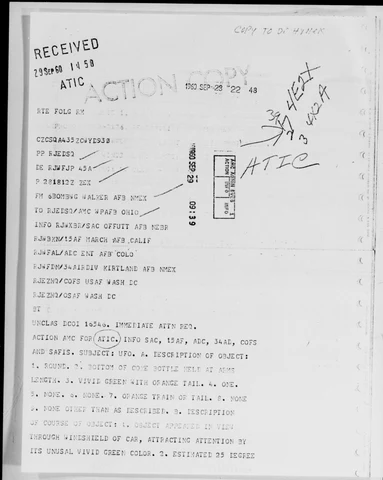 COPY TO DR HYNEK
RECEIVED
29 SEP 60 14 50
ATIC
ACTION COPY
1960 SEP 28 22 48
RTE FOLG RX
4E2X
39
3 4X2A
ATIC
CZCSQA435ZCWYD930
PP RJEDSQ
DE RJWFJP 45A
P 281812Z ZEX
FM 6BOMBWG WALKER AFB NMEX
TO RJEDSQ/AMC WPAFB OHIO
INFO RJWXBR/SAC OFFUTT AFB NEBR
RJWBKN/15AF MARCH AFB CALIF
RJWFAL/AEC ENT AFB COLO
RJWFDM/34AIRDIV KIRTLAND AFB NMEX
RJEZHQ/COFS USAF WASH DC
RJEZHQ/OSAF WASH DC
BT
1960 SEP 29 09 39
ACTION
INFO
INFO
UNCLAS DCOI 1654. IMMEDIATE ATTN REQ.
ACTION AMC FOR ATIC. INFO SAC, 15AF, ADC, 34AD, COFS
AND SAFIS. SUBJECT: UFO. A. DESCRIPTION OF OBJECT:
1. ROUND. 2. BOTTOM OF COKE BOTTLE HELD AT ARMS
LENGTH. 3. VIVID GREEN WITH ORANGE TAIL. 4. ONE.
5. NONE. 6. NONE. 7. ORANGE TRAIN OR TAIL. 8. NONE
9. NONE OTHER THAN AS DESCRIBED. B. DESCRIPTION
OF COURSE OF OBJECT: 1. OBJECT APPEARED IN VIEW
THROUGH WINDSHIELD OF CAR, ATTRACTING ATTENTION BY
ITS UNUSAL VIVID GREEN COLOR. 2. ESTIMATED 35 DEGREE